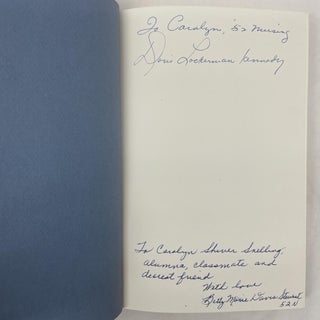 To Carolyn, '52 Nursing
Doris Lockerman Kennedy
To Carolyn Shiver Snelling,
alumna, classmate and
dearest friend
With love
Betty Marie Davis Stewart
52N